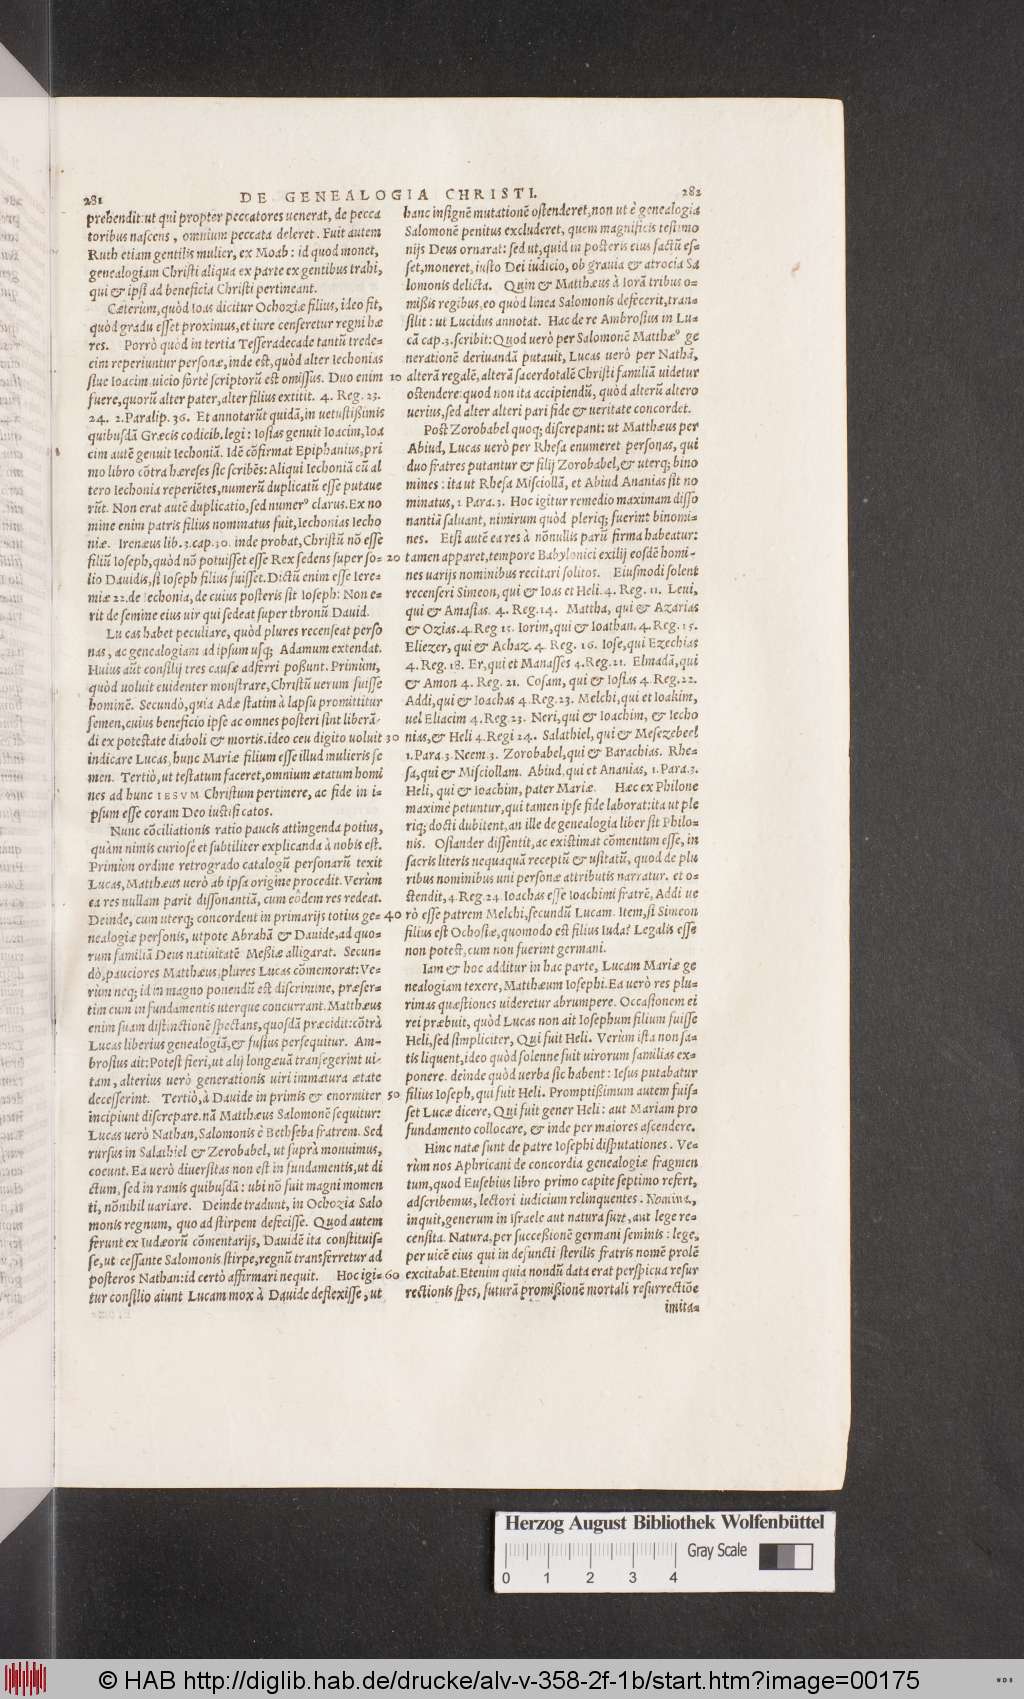 281
DE GENEALOGIA CHRISTI.
282
prehendit: ut qui propter peccatores uenerat, de pecca
toribus nascens, omnium peccata deleret. Fuit autem
Ruth etiam gentilis mulier, ex Moab: id quod monet,
genealogiam Christi aliqua ex parte ex gentibus trahi,
qui & ipsi ad beneficia Christi pertineant.
Cæterùm, quòd Ioas dicitur Ochoziæ filius, ideo fit,
quòd gradu esset proximus, et iure censeretur regni hæ
res. Porrò quòd in tertia Tesseradecade tantũ trede=
cim reperiuntur personæ, inde est, quòd alter Iechonias
siue Ioacim uicio fortè scriptorũ est omissus. Duo enim 10
fuere, quorũ alter pater, alter filius extitit. 4. Reg. 23.
24. 2. Paralip. 36. Et annotarũt quidã, in uetustißimis
quibusdã Græcis codicib. legi: Iosias genuit Ioacim, Ioa
cim autẽ genuit Iechoniã. Idẽ cõfirmat Epiphanius, pri
mo libro cõtra hæreses sic scribẽs: Aliqui Iechoniã cũ al
tero Iechonia reperiẽtes, numerũ duplicatũ esse putaue
rũt. Non erat autẽ duplicatio, sed numerꝰ clarus. Ex no
mine enim patris filius nominatus fuit, Iechonias Iecho
niæ. Irenæus lib. 3. cap. 30. inde probat, Christũ nõ esse
filiũ Ioseph, quòd nõ potuisset esse Rex sedens super so= 20
lio Dauidis, si Ioseph filius fuisset. Dictũ enim esse Iere=
miæ 22. de Iechonia, de cuius posteris sit Ioseph: Non e=
rit de semine eius uir qui sedeat super thronũ Dauid.
Lucas habet peculiare, quòd plures recenseat perso
nas, ac genealogiam ad ipsum usq; Adamum extendat.
Huius aũt consilij tres causæ adferri poßunt. Primùm,
quòd uoluit euidenter monstrare, Christũ uerum fuisse
hominẽ. Secundò, quia Adæ statim à lapsu promittitur
semen, cuius beneficio ipse ac omnes posteri sint liberã=
di ex potestate diaboli & mortis. ideo ceu digito uoluit 30
indicare Lucas, hunc Mariæ filium esse illud mulieris se
men. Tertiò, ut testatum faceret, omnium ætatum homi
nes ad hunc IESVM Christum pertinere, ac fide in i=
psum esse coram Deo iustificatos.
Nunc cõciliationis ratio paucis attingenda potius,
quàm nimis curiosè et subtiliter explicanda à nobis est.
Primùm ordine retrogrado catalogũ personarũ texit
Lucas, Matthæus uerò ab ipsa origine procedit. Verùm
ea res nullam parit dissonantiã, cum eõdem res redeat.
Deinde, cum uterq; concordent in primarijs totius ge= 40
nealogiæ personis, utpote Abrahã & Dauide, ad quo=
rum familiã Deus natiuitatẽ Meßiæ alligarat. Secun=
dò, pauciores Matthæus, plures Lucas cõmemorat: Ve=
rùm neq; id in magno ponendũ est discrimine, præser=
tim cum in fundamentis uterque concurrant. Matthæus
enim suam distinctionẽ spectans, quosdã præcidit: cõtrà
Lucas liberius genealogiã, & fusius persequitur. Am=
brosius ait: Potest fieri, ut alij longæuã transegerint ui=
tam, alterius uerò generationis uiri immatura ætate
decesserint. Tertiò, à Dauide in primis & enormiter 50
incipiunt discrepare. nã Matthæus Salomonẽ sequitur:
Lucas uerò Nathan, Salomonis è Bethseba fratrem. Sed
rursus in Salathiel & Zerobabel, ut suprà monuimus,
coeunt. Ea uerò diuersitas non est in fundamentis, ut di
ctum, sed in ramis quibusdã: ubi nõ fuit magni momen
ti, nõnihil uariare. Deinde tradunt, in Ochozia Salo
monis regnum, quo ad stirpem defecisse. Quod autem
ferunt ex Iudæorũ cõmentarijs, Dauidẽ ita constituis=
se, ut cessante Salomonis stirpe, regnũ transferretur ad
posteros Nathan: id certò affirmari nequit. Hoc igi= 60
tur consilio aiunt Lucam mox à Dauide deflexisse, ut
hanc insignẽ mutationẽ ostenderet, non ut è genealogia
Salomonẽ penitus excluderet, quem magnificis testimo
nijs Deus ornarat: sed ut, quid in posteris eius factũ es=
set, moneret, iusto Dei iudicio, ob grauia & atrocia Sa
lomonis delicta. Quin & Matthæus à Iorã tribus o=
mißis regibus, eo quòd linea Salomonis defecerit, tran=
silit: ut Lucidus annotat. Hac de re Ambrosius in Lu=
cã cap. 3. scribit: Quod uerò per Salomonẽ Matthæꝰ ge
nerationẽ deriuandã putauit, Lucas uerò per Nathã,
alterã regalẽ, alterã sacerdotalẽ Christi familiã uidetur
ostendere: quod non ita accipiendũ, quòd alterũ altero
uerius, sed alter alteri pari fide & ueritate concordet.
Post Zorobabel quoq; discrepant: ut Matthæus per
Abiud, Lucas uerò per Rhesa enumeret personas, qui
duo fratres putantur & filij Zorobabel, & uterq; bino
mines: ita ut Rhesa Misciollã, et Abiud Ananias sit no
minatus, 1 Para. 3. Hoc igitur remedio maximam disso
nantiã saluant, nimirum quòd pleriq; fuerint binomi=
nes. Etsi autẽ ea res à nõnullis parũ firma habeatur:
tamen apparet, tempore Babylonici exilij eosdẽ homi=
nes uarijs nominibus recitari solitos. Eiusmodi solent
recenseri Simeon, qui & Ioas et Heli. 4. Reg. 11. Leui,
qui & Amasias. 4. Reg. 14. Mattha, qui & Azarias
& Ozias. 4. Reg 15. Iorim, qui & Ioathan. 4. Reg. 15.
Eliezer, qui & Achaz. 4. Reg. 16. Iose, qui Ezechias
4. Reg. 18. Er, qui et Manasses 4. Reg. 21. Elmadã, qui
& Amon 4. Reg. 21. Cosam, qui & Iosias 4 Reg. 22.
Addi, qui & Ioachas 4. Reg. 23. Melchi, qui et Ioakim,
uel Eliacim 4. Reg 23. Neri, qui & Ioachim, & Iecho
nias, & Heli 4. Regi 24. Salathiel, qui & Mesezebeel
1. Para. 3. Neem. 3. Zorobabel, qui & Barachias. Rhe=
sa, qui & Misciollam. Abiud, qui et Ananias, 1. Para. 3.
Heli, qui & Ioachim, pater Mariæ. Hæc ex Philone
maximè petuntur, qui tamen ipse fide laborat: ita ut ple
riq; docti dubitent, an ille de genealogia liber sit Philo=
nis. Osiander dissentit, ac existimat cõmentum esse, in
sacris literis nequaquã receptũ & usitatũ, quod de plu
ribus nominibus uni personæ attributis narratur. et o=
stendit, 4. Reg. 24. Ioachas esse Ioachimi fratrẽ, Addi ue
rò esse patrem Melchi, secundũ Lucam. Item, si Simeon
filius est Ochosiæ, quomodo est filius Iuda? Legalis esse
non potest, cum non fuerint germani.
Iam & hoc additur in hac parte, Lucam Mariæ ge
nealogiam texere, Matthæum Iosephi. Ea uerò res plu=
rimas quæstiones uideretur abrumpere. Occasionem ei
rei præbuit, quòd Lucas non ait Iosephum filium fuisse
Heli, sed simpliciter, Qui fuit Heli. Verùm ista non sa=
tis liquent, ideo quòd solenne fuit uirorum familias ex=
ponere. deinde quòd uerba sic habent: Iesus putabatur
filius Ioseph, qui fuit Heli. Promptißimum autem fuis=
set Lucæ dicere, Qui fuit gener Heli: aut Mariam pro
fundamento collocare, & inde per maiores ascendere.
Hinc natæ sunt de patre Iosephi disputationes. Ve=
rùm nos Aphricani de concordia genealogiæ fragmen
tum, quod Eusebius libro primo capite septimo refert,
adscribemus, lectori iudicium relinquentes. Nomina,
inquit, generum in Israele aut natura sunt, aut lege re=
censita. Natura, per succeßionẽ germani seminis: lege,
per uicẽ eius qui in defuncti sterilis fratris nomẽ prolẽ
excitabat. Etenim quia nondũ data erat perspicua resur
rectionis spes, futurã promißionẽ mortali resurrectiõe
imita=
Herzog August Bibliothek Wolfenbüttel
Gray Scale
0 1 2 3 4
© HAB http://diglib.hab.de/drucke/alv-v-358-2f-1b/start.htm?image=00175